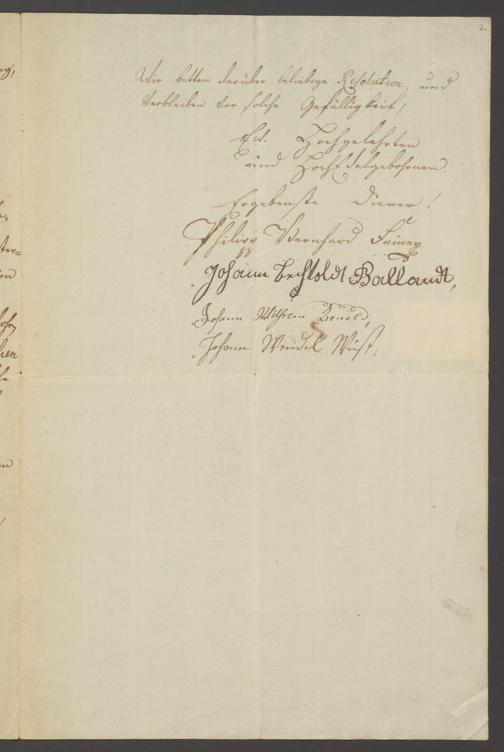 2
Wir bitten darüber beliebige Resolution, und
verbleiben vor solche Gefälligkeit,
Ew. Hochgelahrten
und HochEdelgebohrnen
Ergebenste Diener!
Philipp Bernhard
Johann Bechtoldt Ballandt,
Johann Wilhelm
Johann Wendel Wüst,